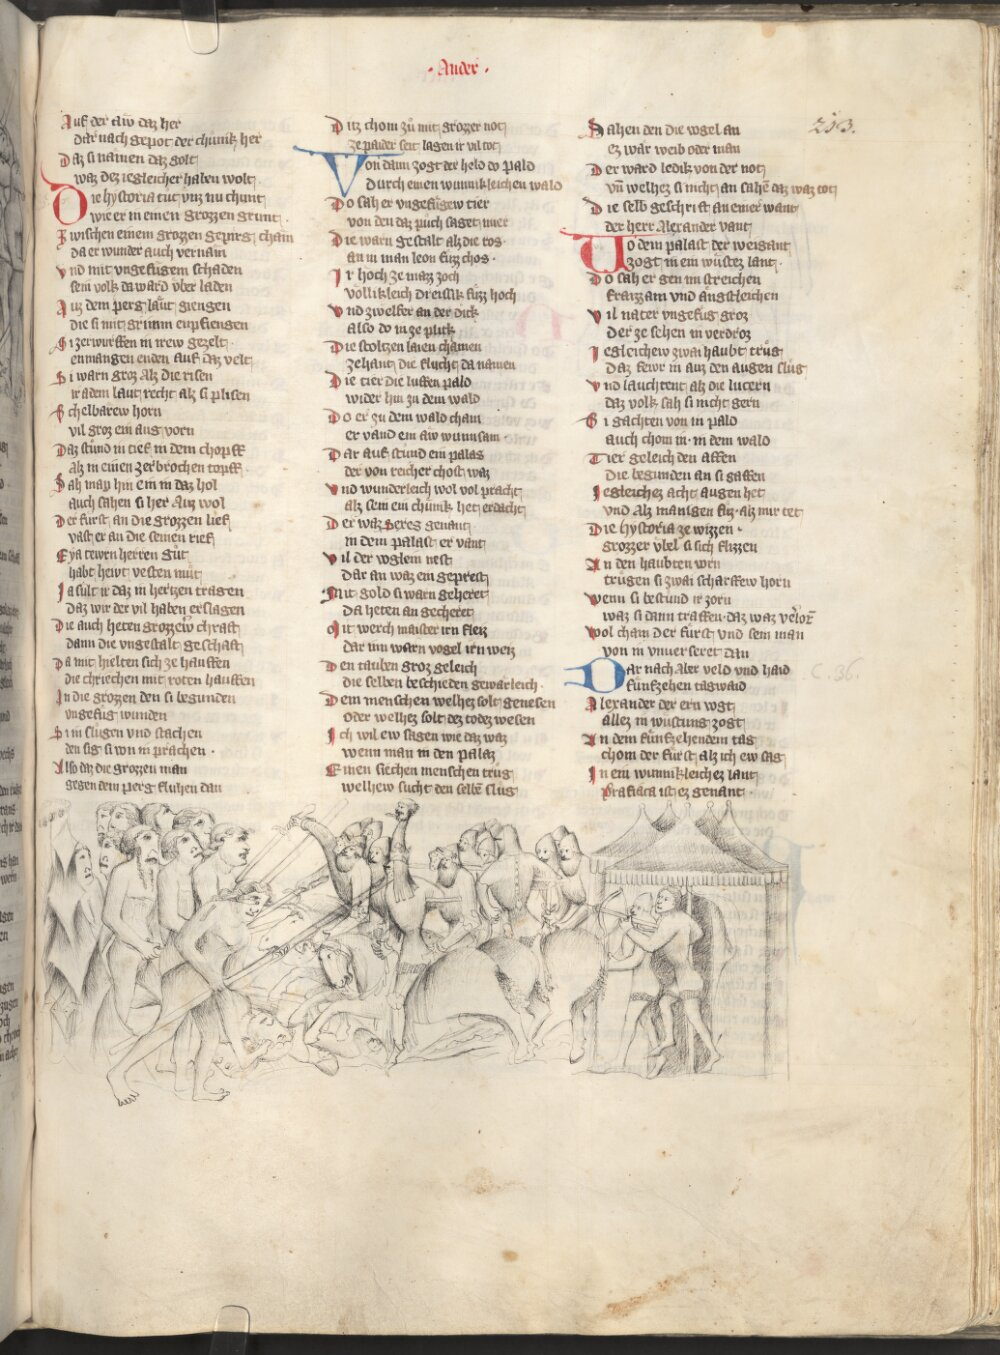 · Ander ·
253.
Auf der aw daz her
dar nach gepot der chünik her
Daz si namen daz golt
waz dez iegleicher haben wolt
Die hystoria tüt unz nu chunt
wie er in einen grozzen grunt
Zwischen einem grozzen gepirg chain
da er wunder auch vernain
Vnd mit vngefügem schaden
sein volk da ward vber laden
Auz dem perg laüt giengen
die si mit grimm enpfiengen
Si zerwurffen in irew gezelt
en mangen enden auf daz velt
Si warn groz als die risen
ir adem laut recht alz si plisen
Schelbarew horn
vil groz ein aug vorn
Daz stünd in tief in dem chopff
alz in einen zerbrochen topff
Sah man hin ein in daz hol
auch sahen si her auz wol
Der fürst an die grozzen lief
vast er an die seinen rief
Eya tewrn herren güt
habt hewt vesten müt
Ia sült ir daz in hertzen tragen
daz wir der vil haben erslagen
Die auch heten grozzew chraft
dann die vngestalt geschaft
Da mit hielten sich ze hauffen
die chriechen mit roten hauffen
In die grozzen den si begunden
vngefüg wunden
Si in slügen vnd stachen
den sig si von in prachen ·
Also daz die grozzen man
gegen dem perg fluhen dan
Ditz chom zü mit grozzer not
ze paider seit lagen ir vil tot
Von dann zogt der held do pald
durch einen wunnikleichen wald
Do sah er vngefügew tier
von den daz püch saget mier
Die warn gestalt alz die ros
an in man leon füzz chos ·
Ir hoch ze mazz zoch
vollikleich dreissik füzz hoch
Vnd zwelfer an der dick
also do in ze plick
Die stoltzen laien chamen
zehant die flucht da namen
Die tier die luffen pald
wider hin zü dem wald
Do er zu dem wald cham
er vand ein aw wunnsam
Dar auf stünd ein palas
der von reicher chost waz
Vnd wunderleich wol vol pracht
alz sein ein chünik het erdacht
Der waz Seres genant
in dem palast er vant
Vil der voglein nest
dar an waz ein geprest
Mit gold si warn geheret
da heten an gecheret
Mit werch maister irn fleiz
dar inn warn vogel irn weiz
Den tauben groz geleich
die selben beschieden gewarleich ·
Dem menschen welhez solt genesen
oder welhez solt dez todez wesen
Ich wil ew sagen wie daz waz
wenn man in den palaz
Einen siechen menschen trüg
welhew sucht den selbē slüg
Sahen den die vogel an
ez wär weib oder man
Der ward ledik von der not
vn̄ welhez si nicht an sahē daz waz tot
Die selb geschrift an einer want
der herr Alexander vant
Uo dem palast der weigant
zogt in ein wüstez lant ·
Do sah er gen im streichen
fraizzam vnd ängstleichen
Vil nater vngefüg groz
der ze sehen in verdroz
Iegleichew zwai haubt trüg
daz fewr in auz den augen slüg
Vnd lauchtent alz die lucern
daz volk sah si nicht gern
Si gachten von in pald
auch chom in · in dem wald
Tier geleich den affen
die begunden an si gaffen
Iegleichez acht augen het
vnd alz manigen füz · alz mir tet
Die hystoria ze wizzen ·
grozzer vbel si sich flizzen
An den haubten vorn
trügen si zwai scharffew horn
Wenn si bestund ir zorn
waz si dann traffen · daz waz v̄lorn̄
Wol cham der fürst vnd sein man
von in vnuerseret dan
Dar nach vber veld vnd haid
fünfzehen tagwaid
Alexander der ern vogt
allez in wüstung zogt
An dem fünfzehendem tag
chom der fürst alz ich ew sag
In ein wunnikleichez lant
Prasiaca ist ez genant ·
C. 36.